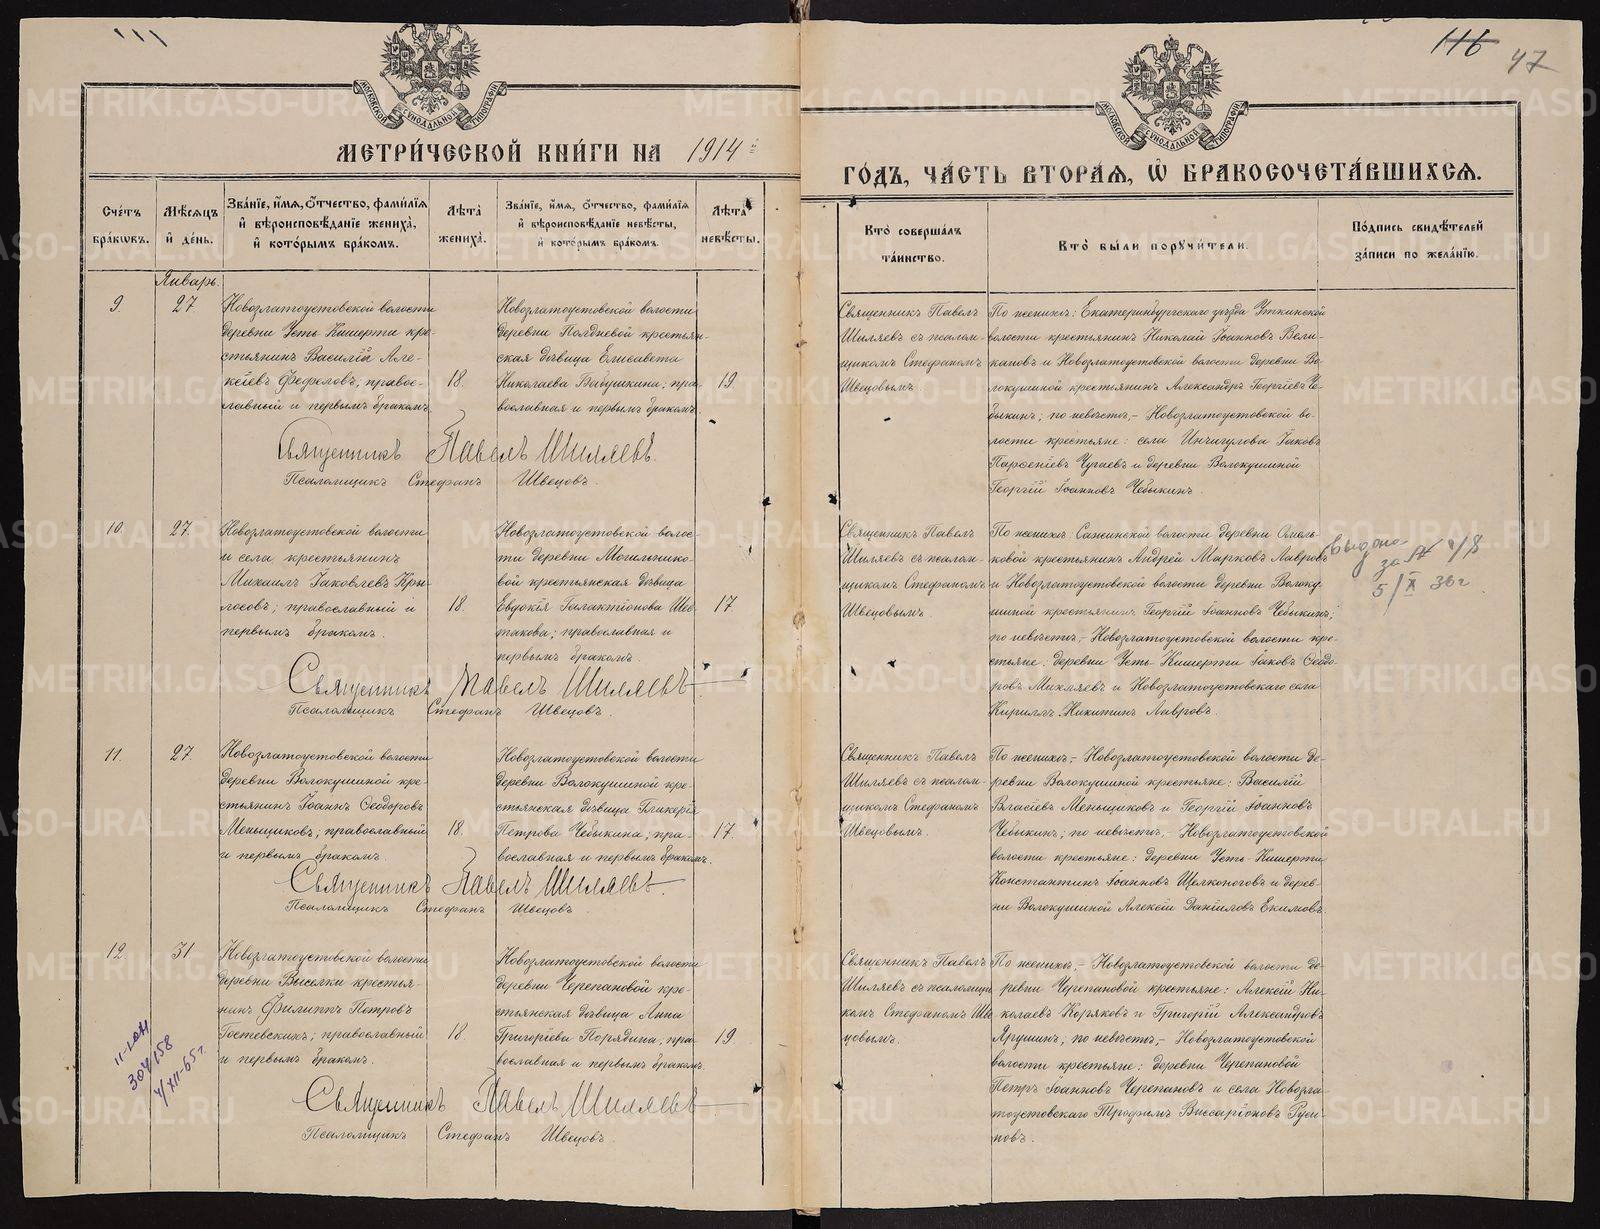 116
47
МЕТРИ́ЧЕСКОЙ КНИ́ГИ НА 1914
ГО́ДЪ, ЧА́СТЬ ВТОРА́Я, Ѿ БРАКОСОЧЕТА́ВШИХСЯ.
МОСКОВСКОЙ СѴНОДАЛЬНОЙ ТИПОГРАФІИ
МОСКОВСКОЙ СѴНОДАЛЬНОЙ ТИПОГРАФІИ
Счетъ браковъ.
Мѣсяцъ и день.
Званіе, имя, отчество, фамилія
и вѣроисповѣданіе жениха,
и которымъ бракомъ.
Лѣта жениха.
Званіе, имя, отчество, фамилія
и вѣроисповѣданіе невѣсты,
и которымъ бракомъ.
Лѣта невѣсты.
Кто совершалъ
таинство.
Кто были поручители.
Подпись свидѣтелей
записи по желанію.
Январь.
9.
27
Новозлатоустовской волости
деревни Усть Кишерти кре-
стьянинъ Василій Але-
ксѣевъ Фефеловъ, право-
славный и первымъ бракомъ.
18.
Новозлатоустовской волости
деревни Полдневой крестьян-
ская дѣвица Елисавета
Николаева Бабушкина; пра-
вославная и первымъ бракомъ.
19.
Священникъ Павелъ Шиляевъ.
Псаломщикъ Стефанъ Швецовъ.
Священникъ Павелъ
Шиляевъ съ псалом-
щикомъ Стефаномъ
Швецовымъ.
По женихѣ: Екатеринбургскаго уѣзда Уткинской
волости крестьянинъ Николай Іоанновъ Вели-
кановъ и Новозлатоустовской волости деревни Во-
локушиной крестьянинъ Александръ Георгіевъ Че-
быкинъ; по невѣстѣ,- Новозлатоустовской во-
лости крестьяне: села Ичигулова Іаковъ
Парѳеніевъ Чугаевъ и деревни Волокушиной
Георгій Іоанновъ Чебыкинъ.
10.
27.
Новозлатоустовской волости
и села крестьянинъ
Михаилъ Іаковлевъ Кры-
лосовъ; православный и
первымъ бракомъ.
18.
Новозлатоустовской волос-
ти деревни Могильнико-
вой крестьянская дѣвица
Евдокія Галактіонова Шес-
такова; православная и
первымъ бракомъ.
17.
Священникъ Павелъ Шиляевъ
Псаломщикъ Стефанъ Швецовъ.
Священникъ Павелъ
Шиляевъ съ псалом-
щикомъ Стефаномъ
Швецовымъ
По женихѣ Сажинской волости деревни Омель-
ковой крестьянинъ Андрей Марковъ Лавровъ
и Новозлатоустовской волости деревни Волоку-
шиной крестьянинъ Георгій Іоанновъ Чебыкинъ;
по невѣстѣ,- Новозлатоустовской волости кре-
стьяне: деревни Усть Кишерти Іаковъ Ѳеодо-
ровъ Михляевъ и Новозлатоустовскаго села
Кириллъ Никитинъ Лавровъ.
выдано
за №
5/X 36 г
11.
27.
Новозлатоустовской волости
деревни Волокушиной кре-
стьянинъ Іоаннъ Ѳеодоровъ
Меньщиковъ; православный
и первымъ бракомъ.
18.
Новозлатоустовской волости
деревни Волокушиной кре-
стьянская дѣвица Гликерія
Петрова Чебыкина; пра-
вославная и первымъ бракомъ.
17.
Священникъ Павелъ Шиляевъ.
Псаломщикъ Стефанъ Швецовъ
Священникъ Павелъ
Шиляевъ съ псалом-
щикомъ Стефаномъ
Швецовымъ.
По женихѣ,- Новозлатоустовской волости де-
ревни Волокушиной крестьяне: Василій
Власіевъ Меньщиковъ и Георгій Іоанновъ
Чебыкинъ; по невѣстѣ,- Новозлатоустовской
волости крестьяне: деревни Усть-Кишерти
Константинъ Іоанновъ Щелконоговъ и дерев-
ни Волокушиной Алексій Даніиловъ Екимовъ.
12
31.
Новозлатоустовской волости
деревни Выселки крестья-
нинъ Филиппъ Петровъ
Гостевскихъ; православный
и первымъ бракомъ.
18.
Новозлатоустовской волости
деревни Черепановой кре-
стьянская дѣвица Анна
Григоріева Порядина, пра-
вославная и первымъ бракомъ.
19.
Священникъ Павелъ Шиляевъ
Псаломщикъ Стефанъ Швецовъ.
Священникъ Павелъ
Шиляевъ съ псаломщи-
комъ Стефаномъ Шве-
цовымъ.
По женихѣ,- Новозлатоустовской волости де-
ревни Черепановой крестьяне: Алексій Ни-
колаевъ Коряковъ и Григорій Александровъ
Ярушинъ; по невѣстѣ,- Новозлатоустовской
волости крестьяне: деревни Черепановой
Петръ Іоанновъ Черепановъ и села Новозла-
тоустовскаго Трофимъ Виссаріоновъ Руси-
новъ.
304/158
4/XII-65 г.
METRIKI.GASO-URAL.RU